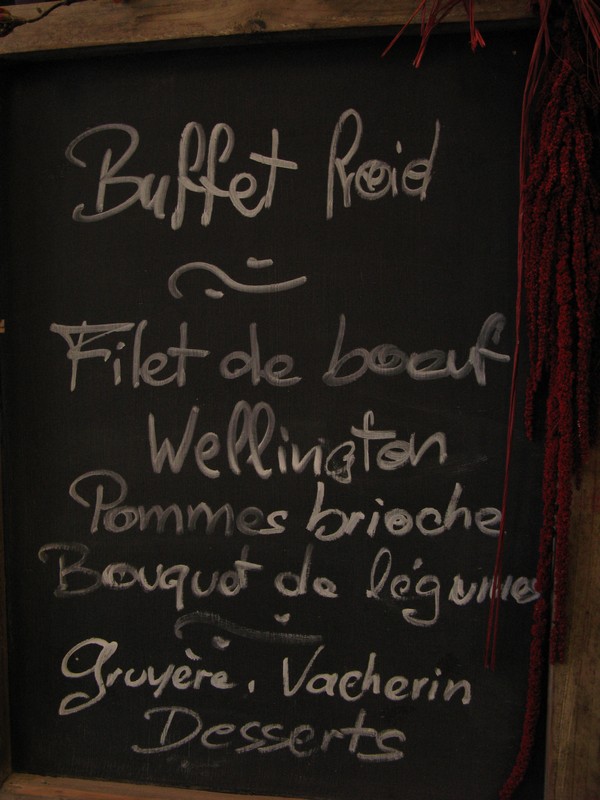 Buffet froid
Filet de boeuf
Wellington
Pommes brioche
Bouquet de légumes
Gruyère, Vacherin
Desserts